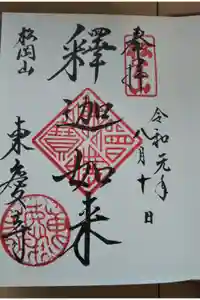 奉拝
令和元年
八月十日
釋迦如来
松岡山
東慶寺